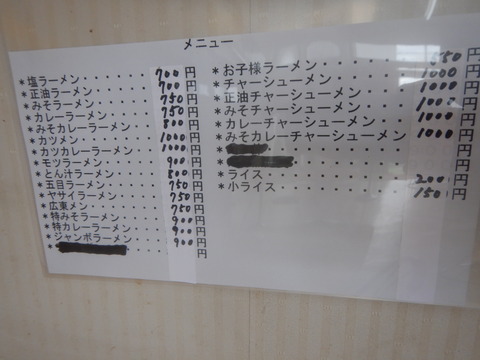 メニュー
*塩ラーメン・・・・・・・700円
*正油ラーメン・・・・・・700円
*みそラーメン・・・・・・750円
*カレーラーメン・・・・・750円
*みそカレーラーメン・・・800円
*カツメン・・・・・・・・1000円
*カツカレーラーメン・・・1000円
*モツラーメン・・・・・・900円
*とん汁ラーメン・・・・・800円
*五目ラーメン・・・・・・750円
*ヤサイラーメン・・・・・750円
*広東メン・・・・・・・・750円
*特みそラーメン・・・・・900円
*特カレーラーメン・・・・900円
*ジャンボラーメン・・・・900円
*・・・・円
*お子様ラーメン・・・・・・・550円
*チャーシューメン・・・・・・1000円
*正油チャーシューメン・・・・1000円
*みそチャーシューメン・・・・1000円
*カレーチャーシューメン・・・1000円
*みそカレーチャーシューメン・1000円
*・・・・・・・・・・円
*・・・・・・・・・円
*ライス・・・・・・・・・・・200円
*小ライス・・・・・・・・・・150円